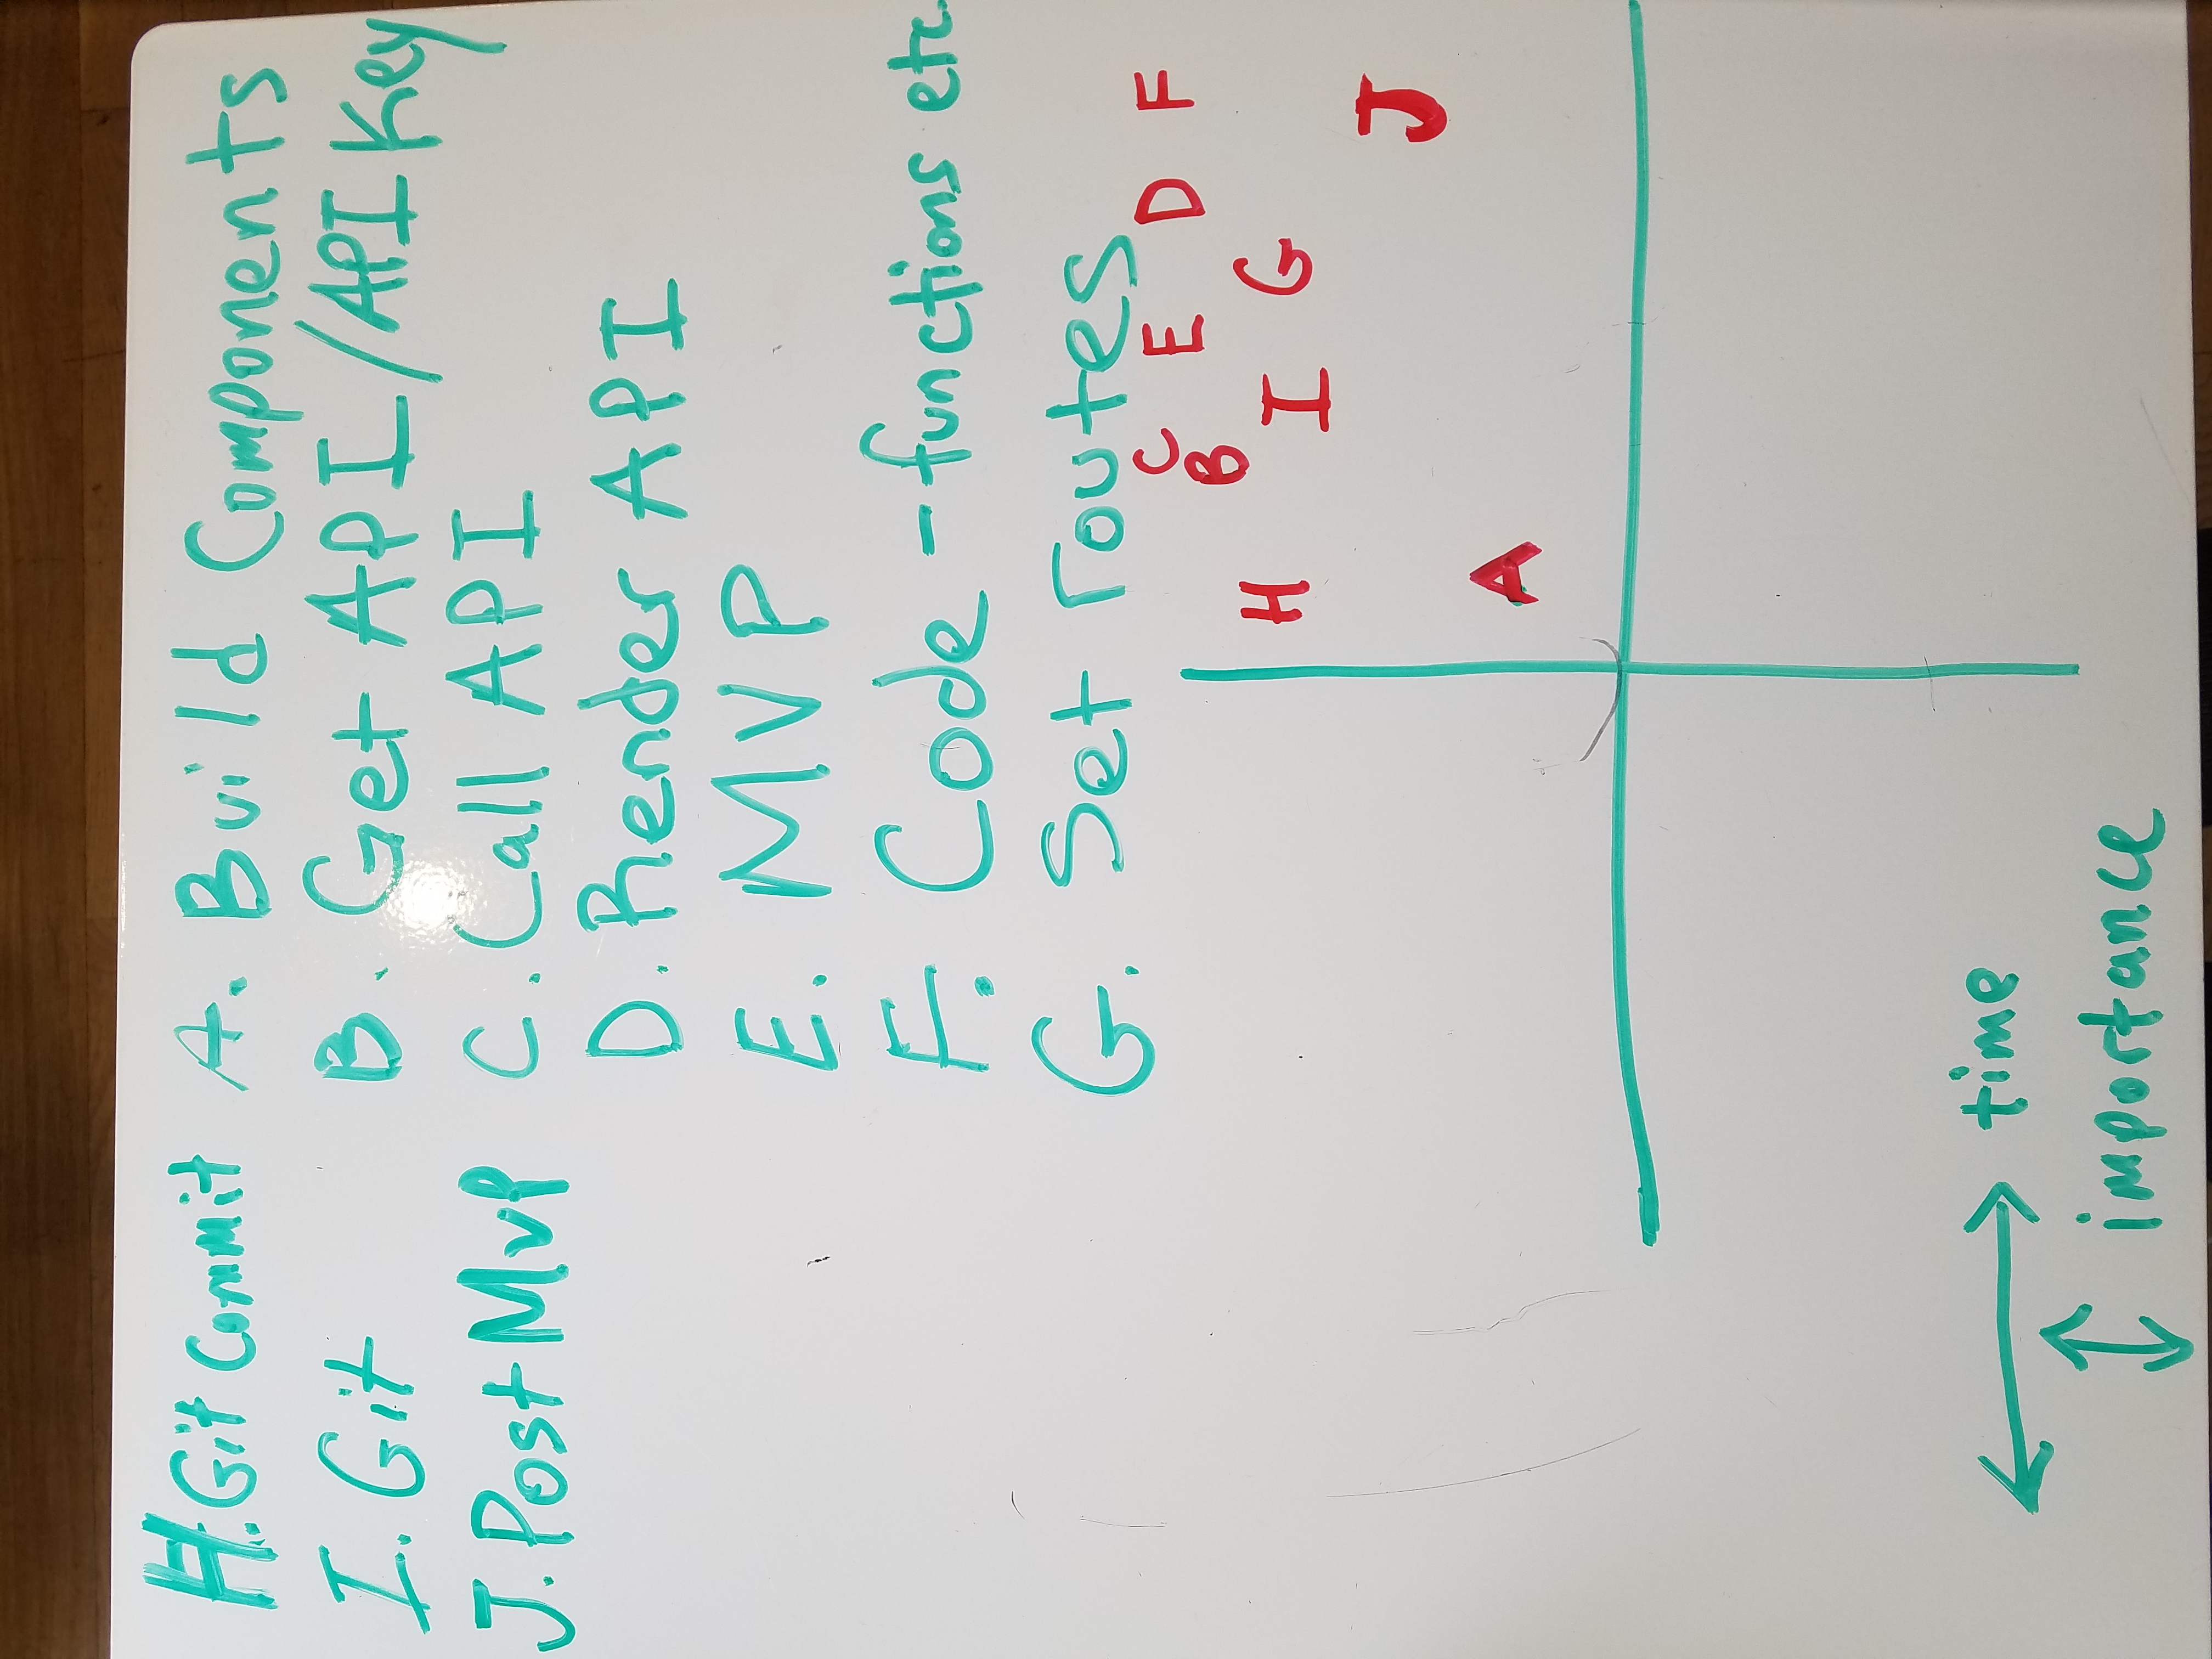 H. Git Commit
I. Git
J. Post MVP
A. Build Components
B. Get API/API Key
C. Call API
D. Render API
E. MVP
F. Code - functions etc.
G. Set routes
C E D F
B
H I G
J
A
time
importance